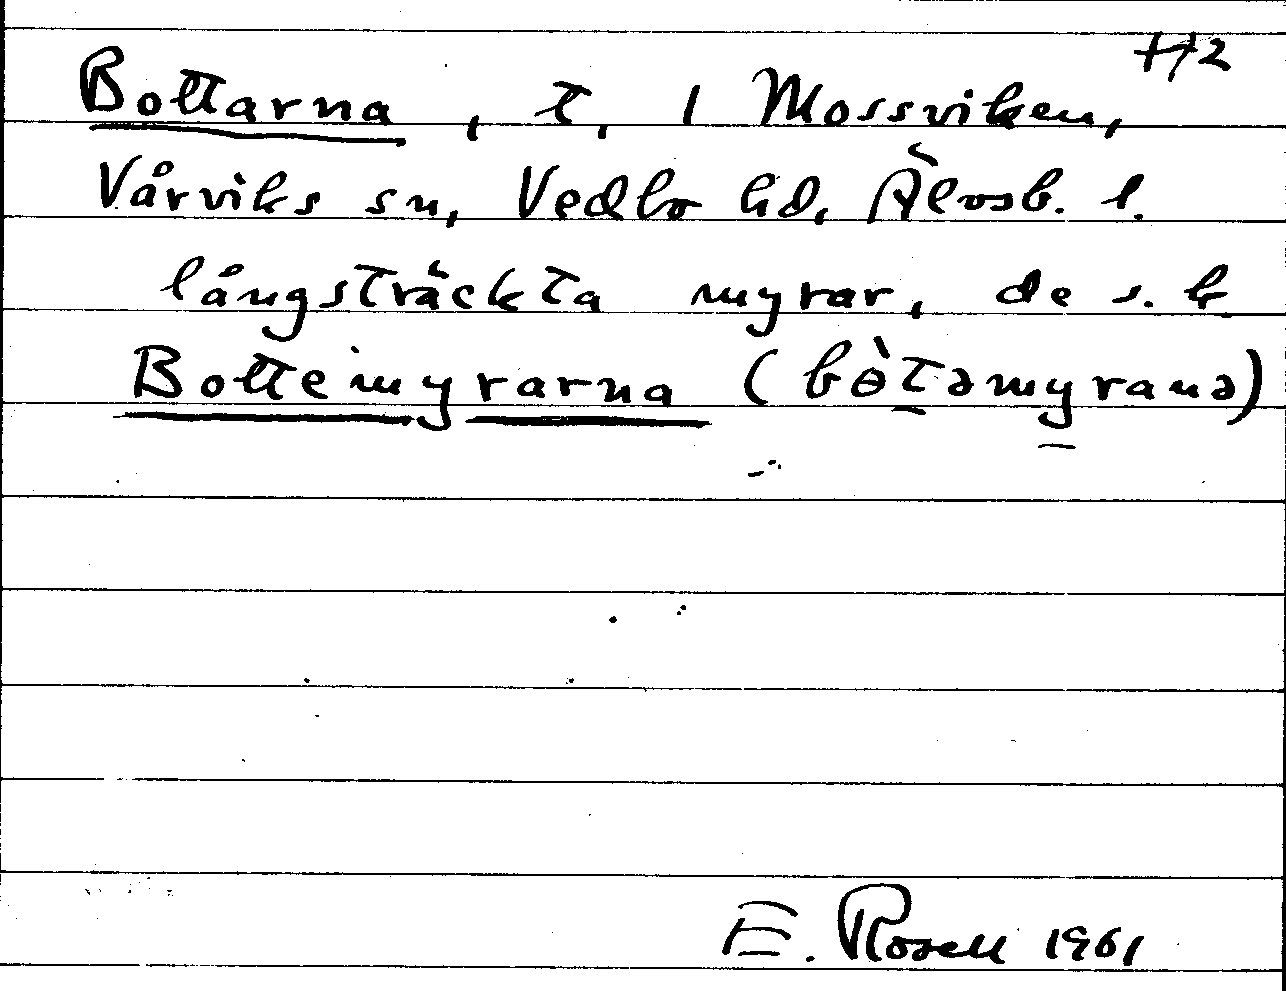 H2
Bottarna, t. 1 Mossviken,
Vårviks sn, Vedbo hd, Älvsb. l.
långsträckta myrar, de s. k
Bottemyrarna (bòtəmyranə)
E. Rosell 1961